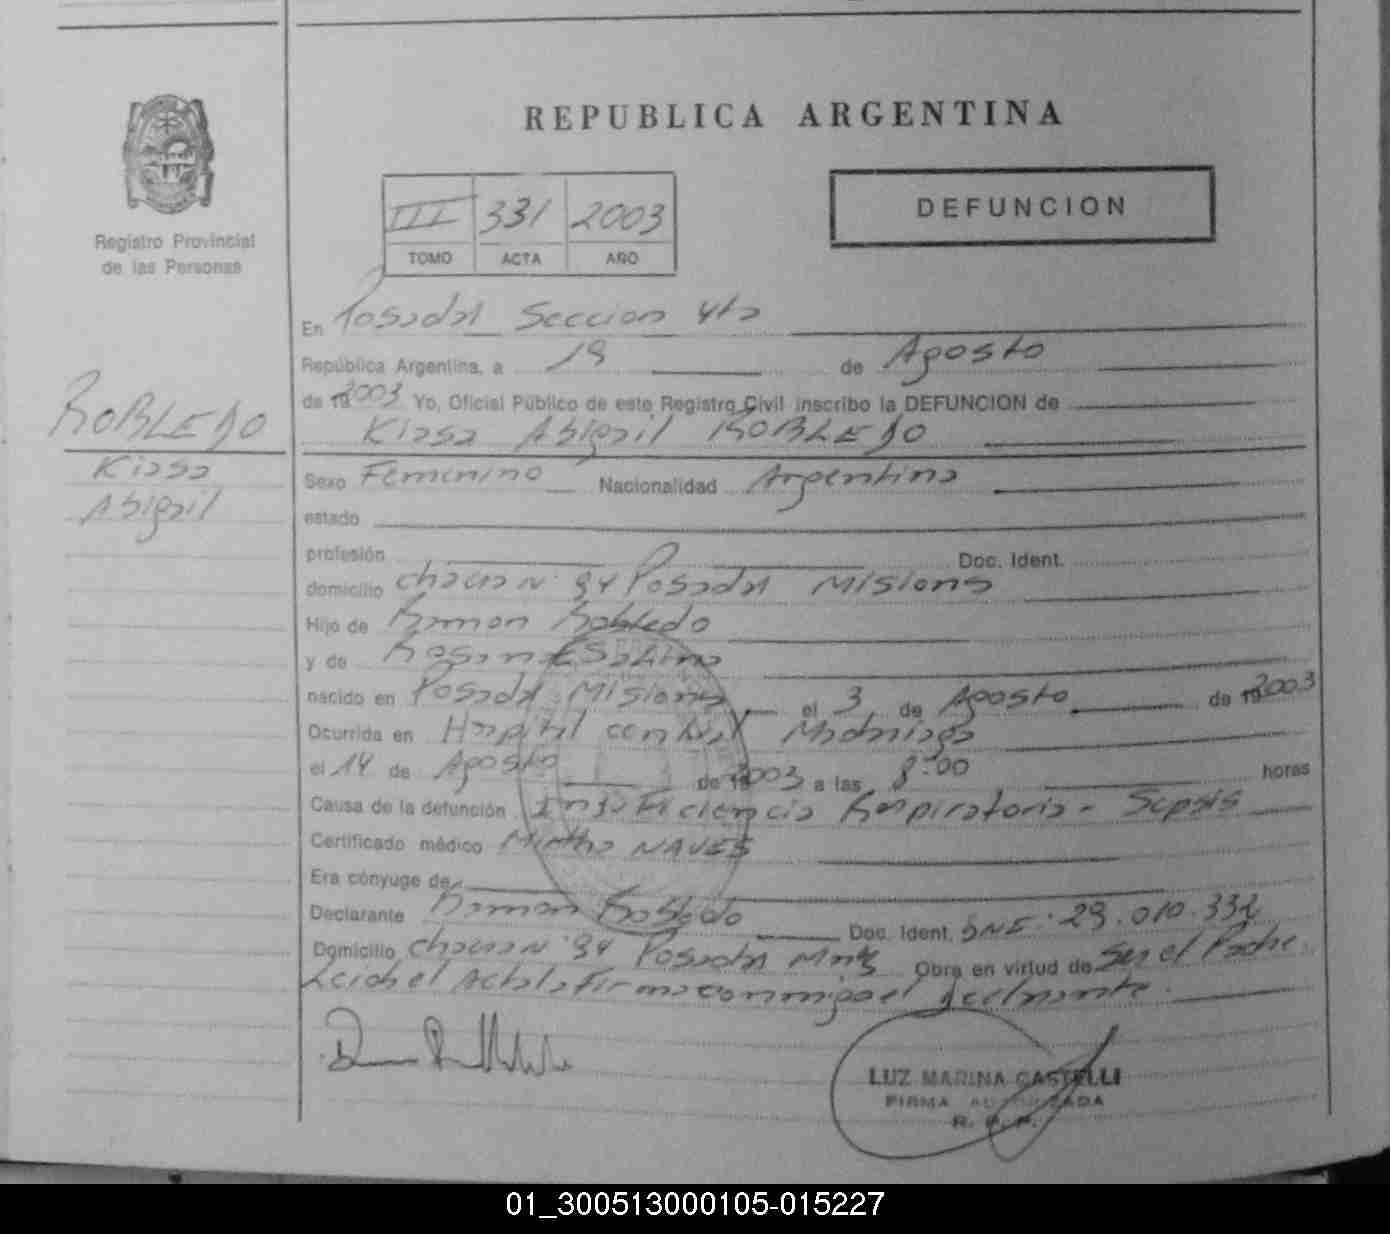 REPUBLICA ARGENTINA
Registro Provincial
de las Personas
III 331 2003
TOMO ACTA AÑO
DEFUNCION
En Posadas Seccion 4ta
República Argentina, a 19 de Agosto
de 19 2003 Yo, Oficial Público de este Registro Civil inscribo la DEFUNCION de
Kiasa Abigail ROBLEDO
ROBLEDO
Kiasa
Abigail
Sexo Femenino Nacionalidad Argentina
estado
profesión Doc. Ident.
domicilio N° 94 Posadas Misiones
Hijo de Ramon Robledo
y de
nacido en Posadas Misiones el 3 de Agosto de 19 2003
Ocurrida en Hospital Madariaga
el 14 de Agosto de 19 2003 a las 8:00 horas
Causa de la defunción Insuficiencia Respiratoria - Sepsis
Certificado médico Mirtha NAVES
Era cónyuge de
Declarante Ramon Robledo Doc. Ident. DNI: 29.010.332
Domicilio N° 94 Posadas Mnes Obra en virtud de Ser el Padre.
Leida el Acta la firma conmigo el declarante.
LUZ MARINA CASTELLI
FIRMA AUTORIZADA
R. P. P.
01_300513000105-015227